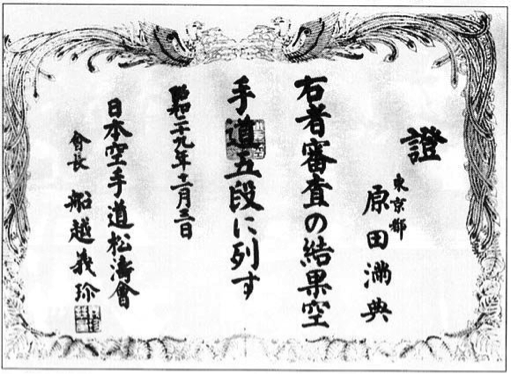 證
東京都
原田満典
右者審査の結果空
手道五段に列す
昭和二十九年十一月三日
日本空手道松濤會
會長 船越義珍